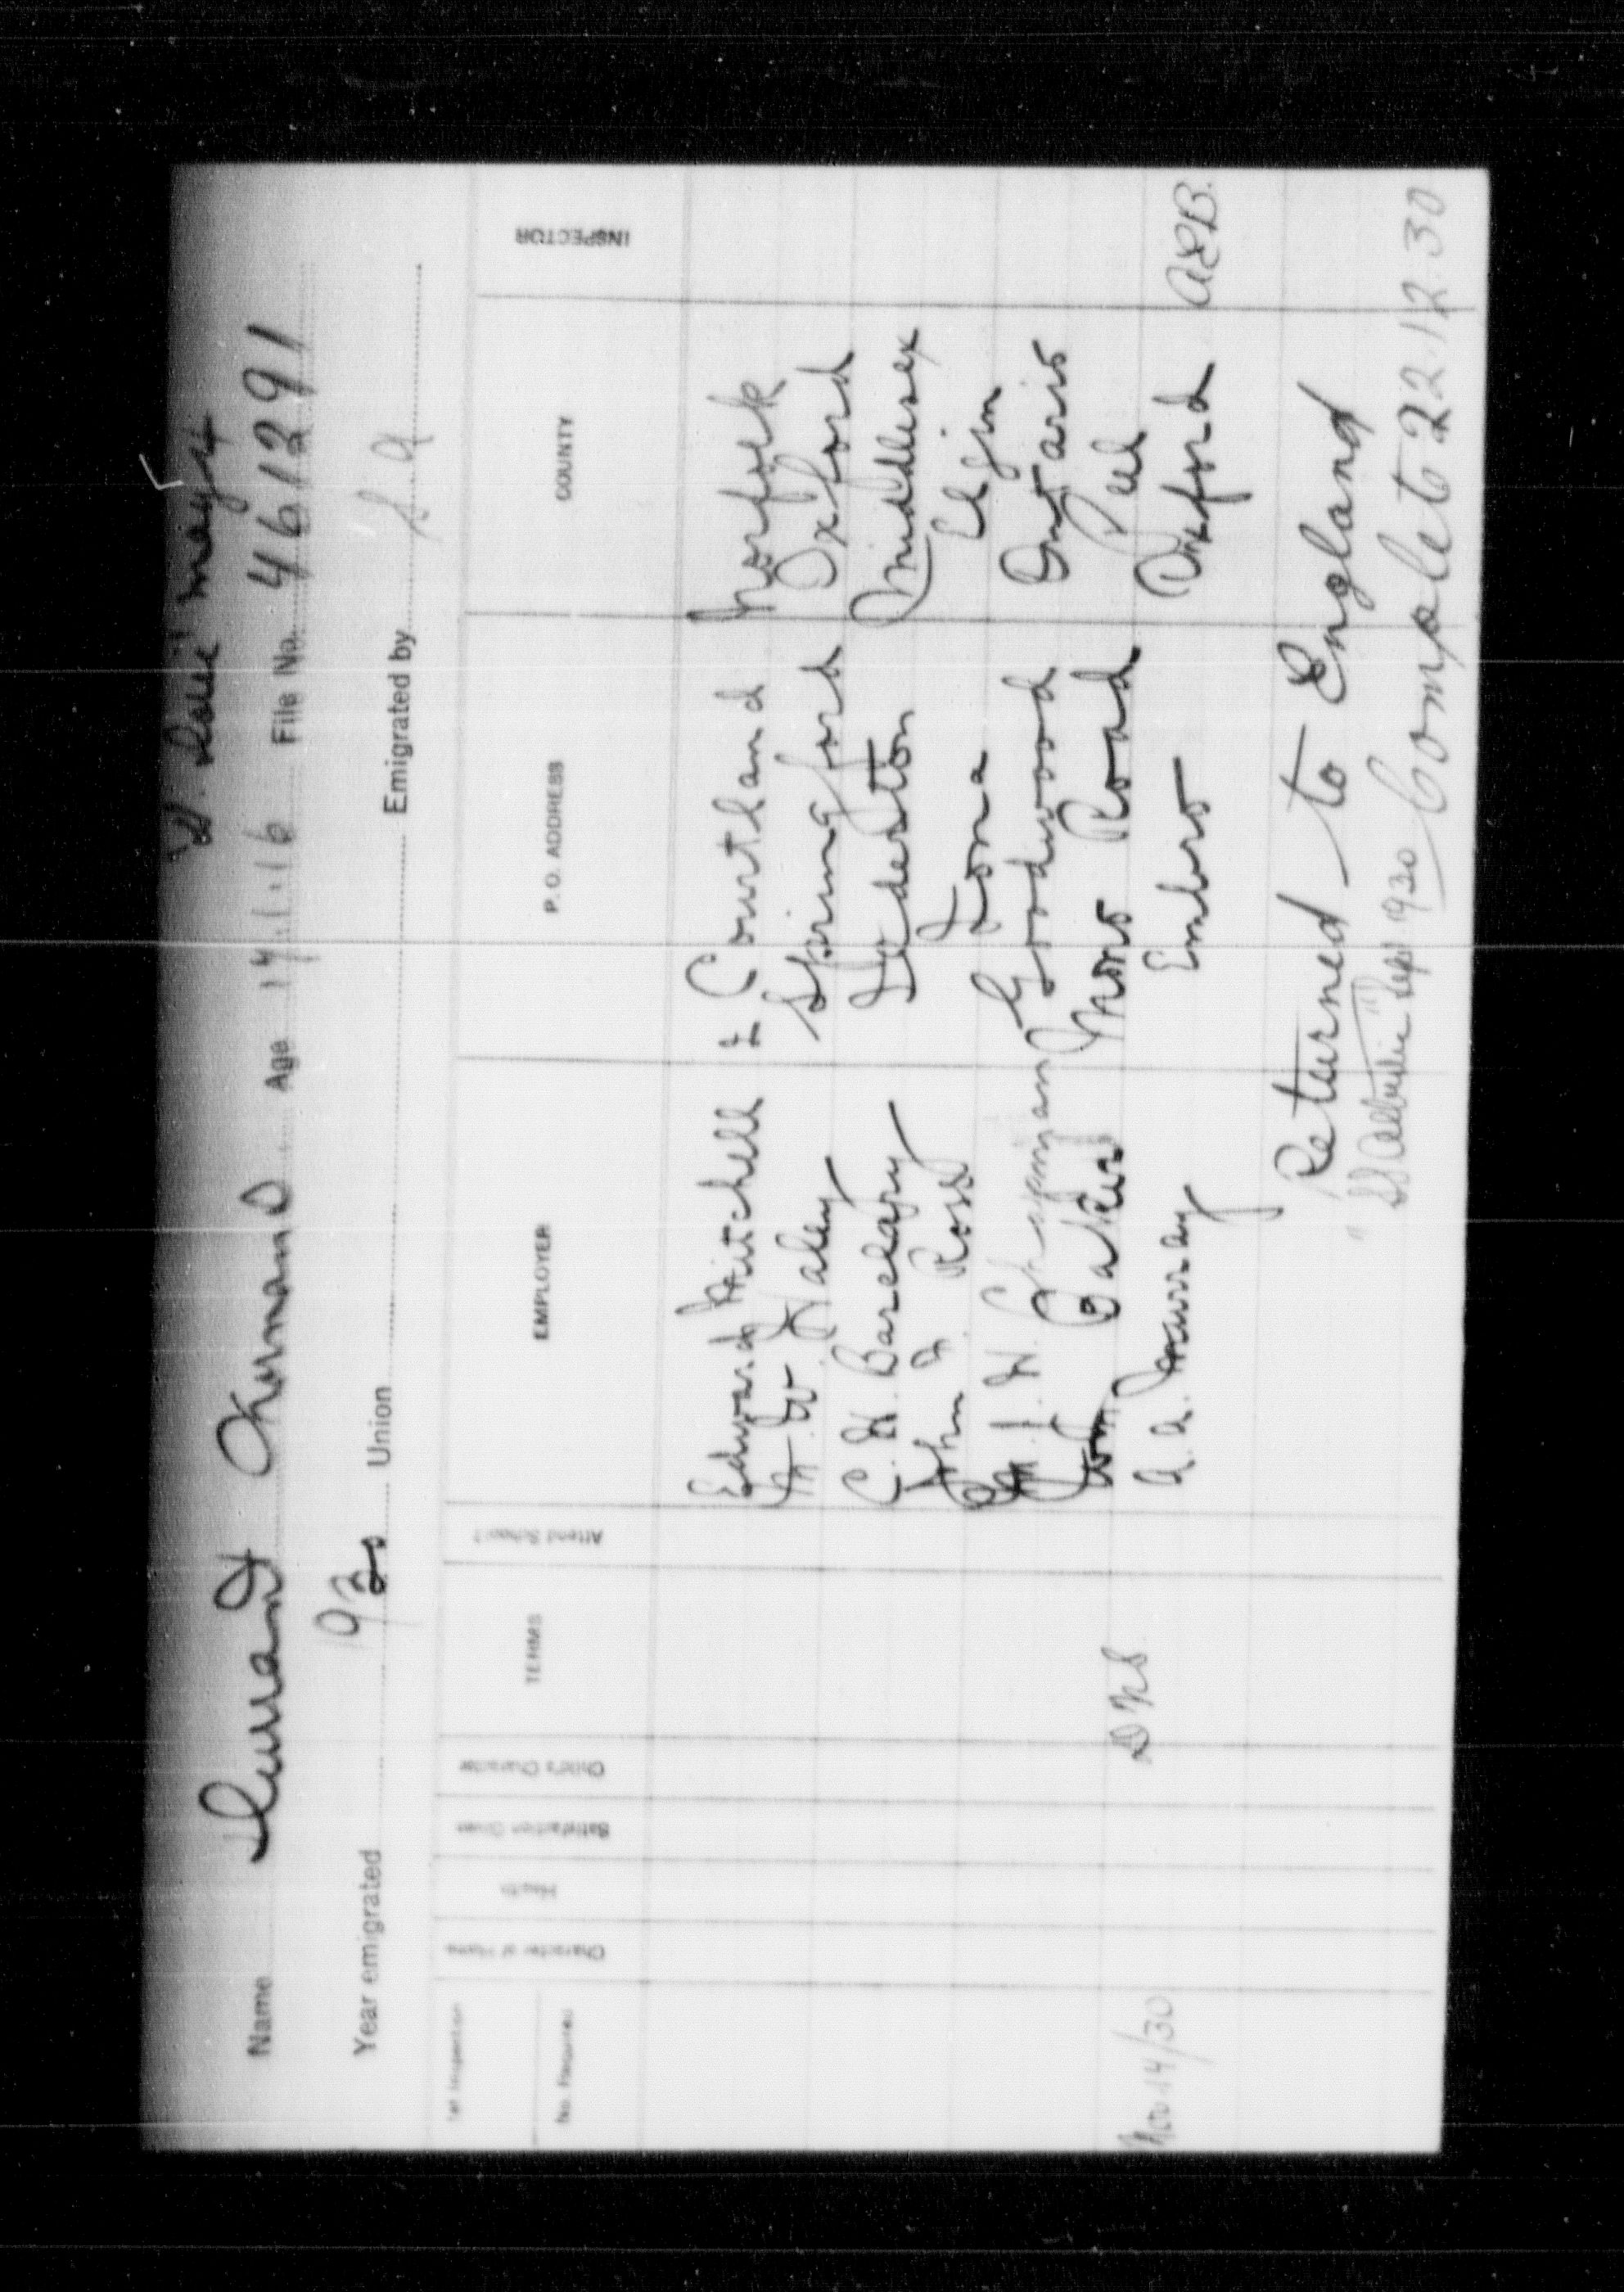 Name Durrant Age 14.1.16 File No. 461291
Year emigrated 1930 Union Emigrated by S.A
1st Inspection
No. Required
Character of Home
Health
Satisfaction Given
Child's Character
TERMS
Attend School?
EMPLOYER
P. O. ADDRESS
COUNTY
INSPECTOR
Edward Hitchell Courtland Norfolk
W Haley Springford Oxford
C. H. Barclay Ilderton Middlesex
John Ross Iona Elgin
Chapman Goodwood Ontario
John Baker Mono Road Peel
Nov 14/30 DNS A. A. Murray Embro Oxford AEB.
Returned to England
Sept 1930 Complete to 22.12.30